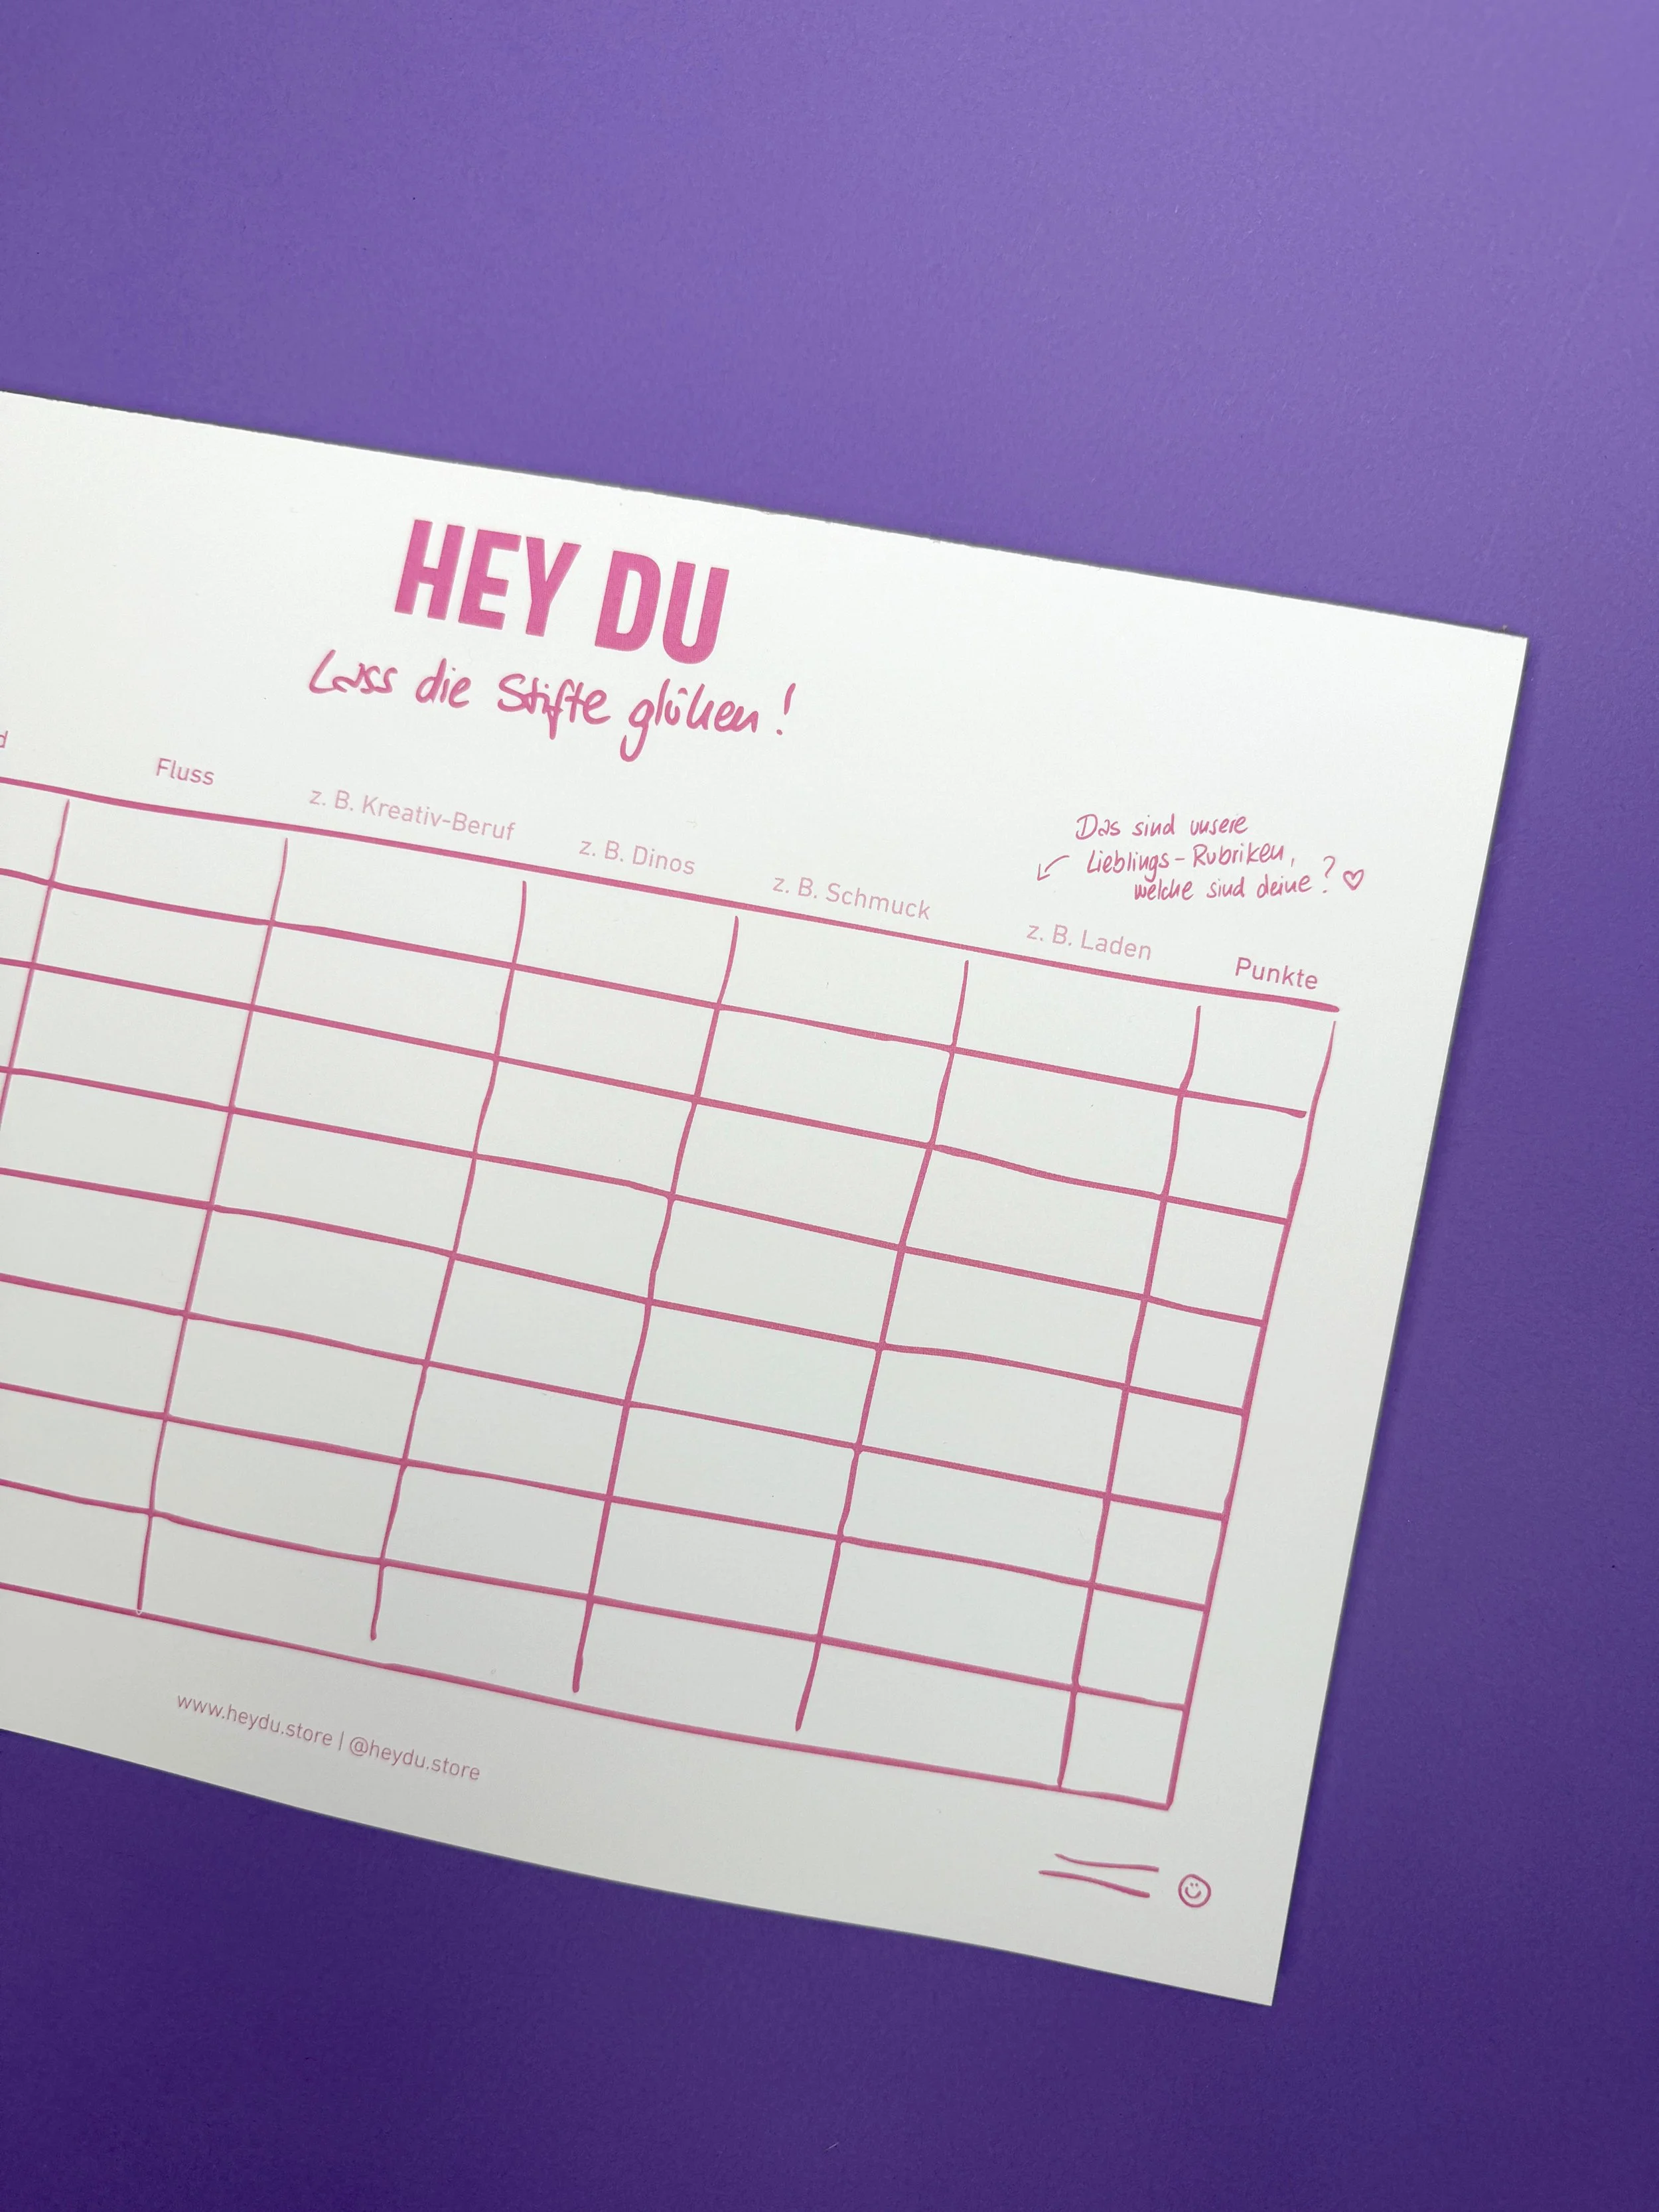 HEY DU
Lass die Stifte glühen!
Das sind unsere
Lieblings-Rubriken,
welche sind deine?
Fluss
z. B. Kreativ-Beruf
z. B. Dinos
z. B. Schmuck
z. B. Laden
Punkte
www.heydu.store | @heydu.store